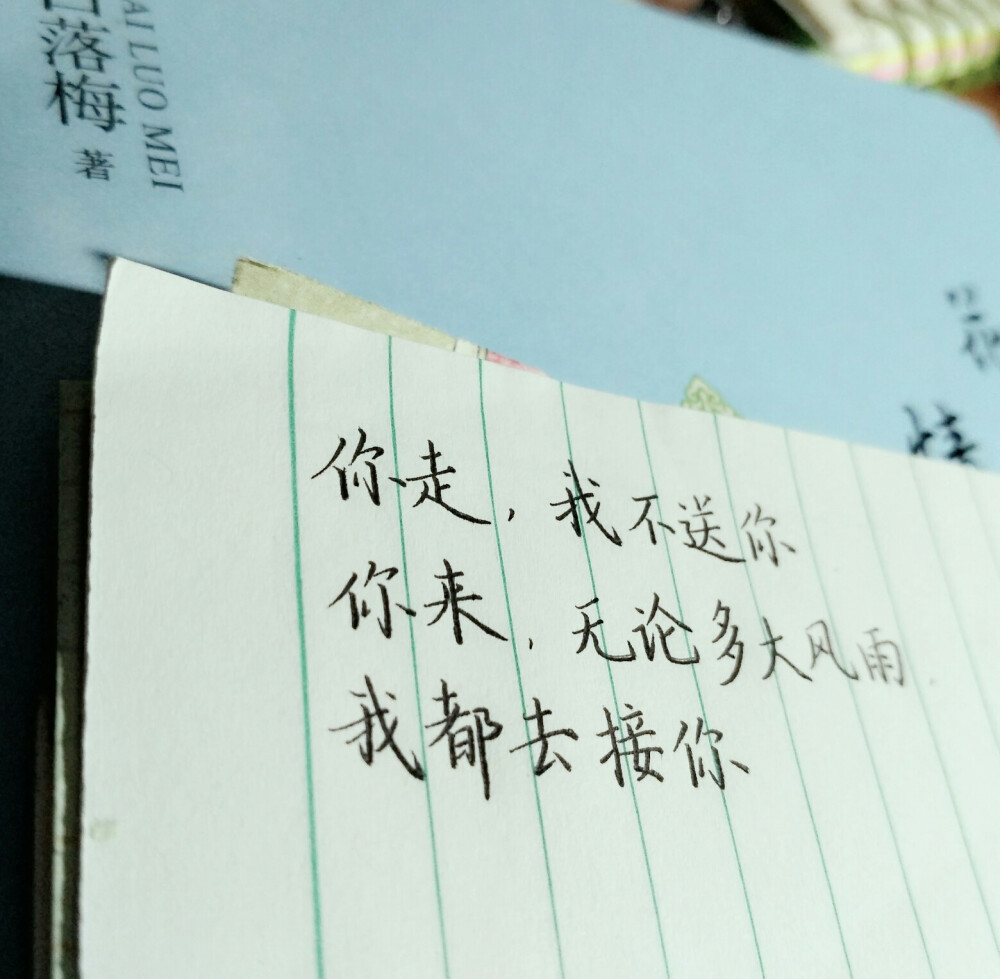 白落梅
著
AI LUO MEI
你走,我不送你
你来,无论多大风雨.
我都去接你